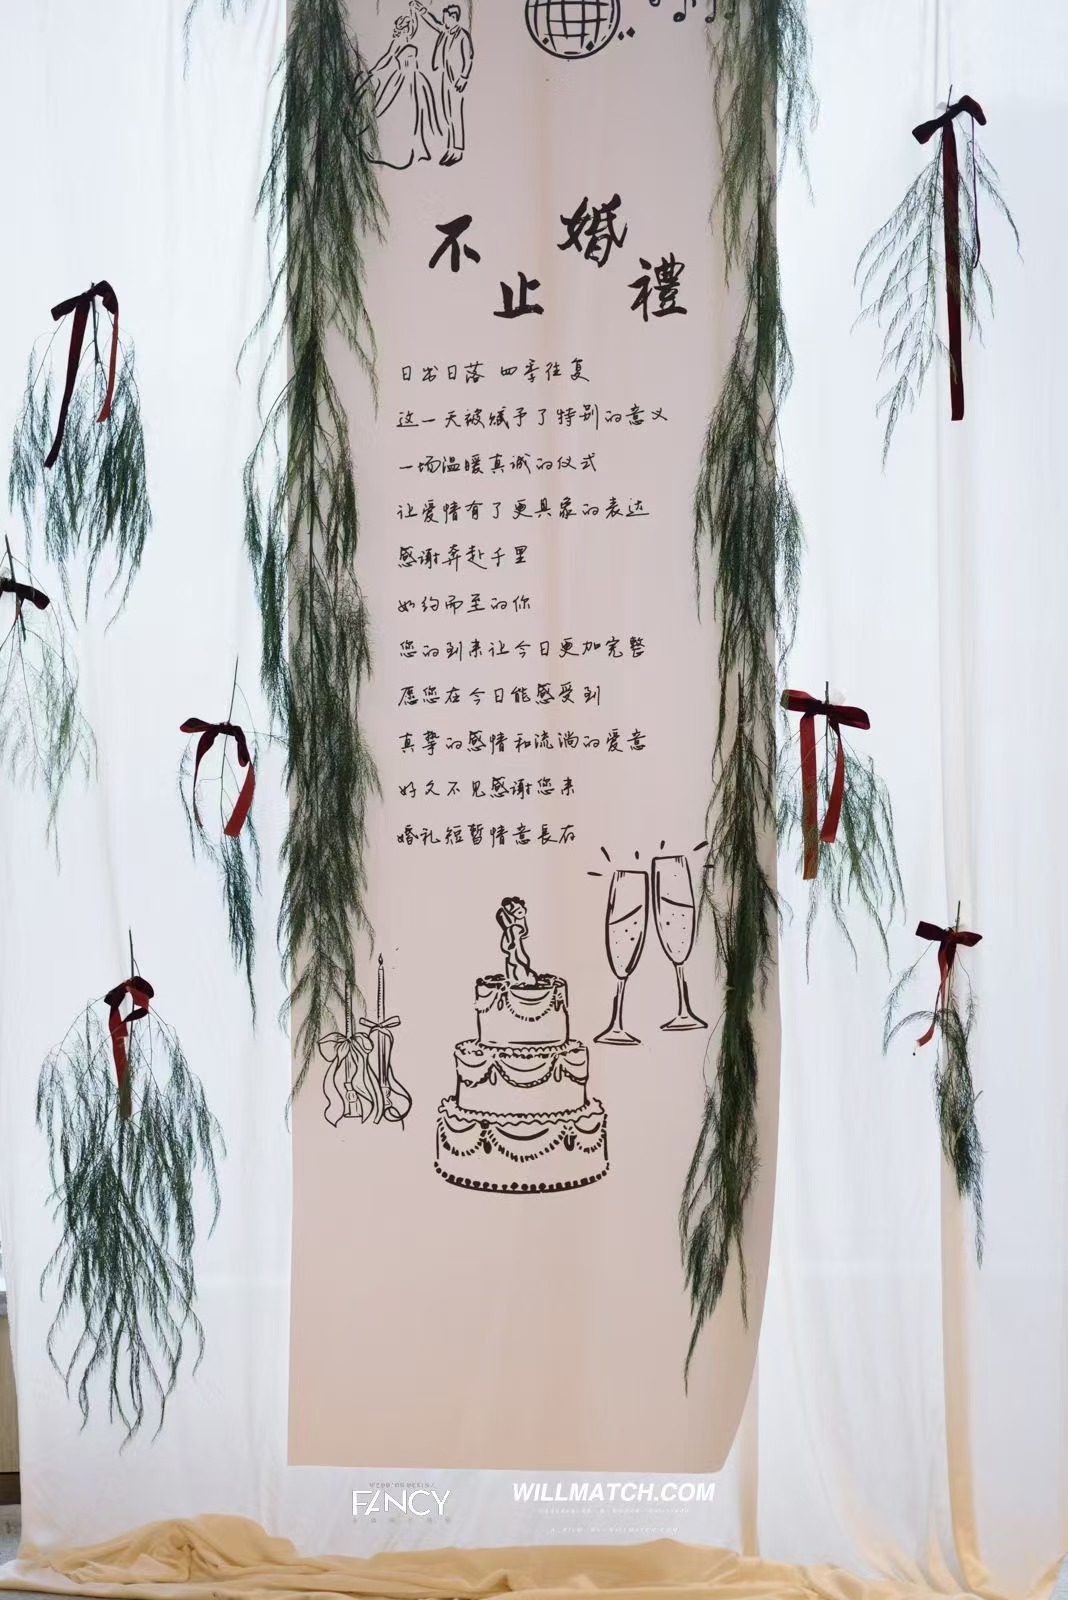 不止婚禮
日出日落 四季往复
这一天被赋予了特别的意义
一场温暖真诚的仪式
让爱情有了更具象的表达
感谢奔赴千里
如约而至的你
您的到来让今日更加完整
愿您在今日能感受到
真挚的感情和流淌的爱意
好久不见感谢您来
婚礼短暂情意長存
FANCY
WILLMATCH.COM